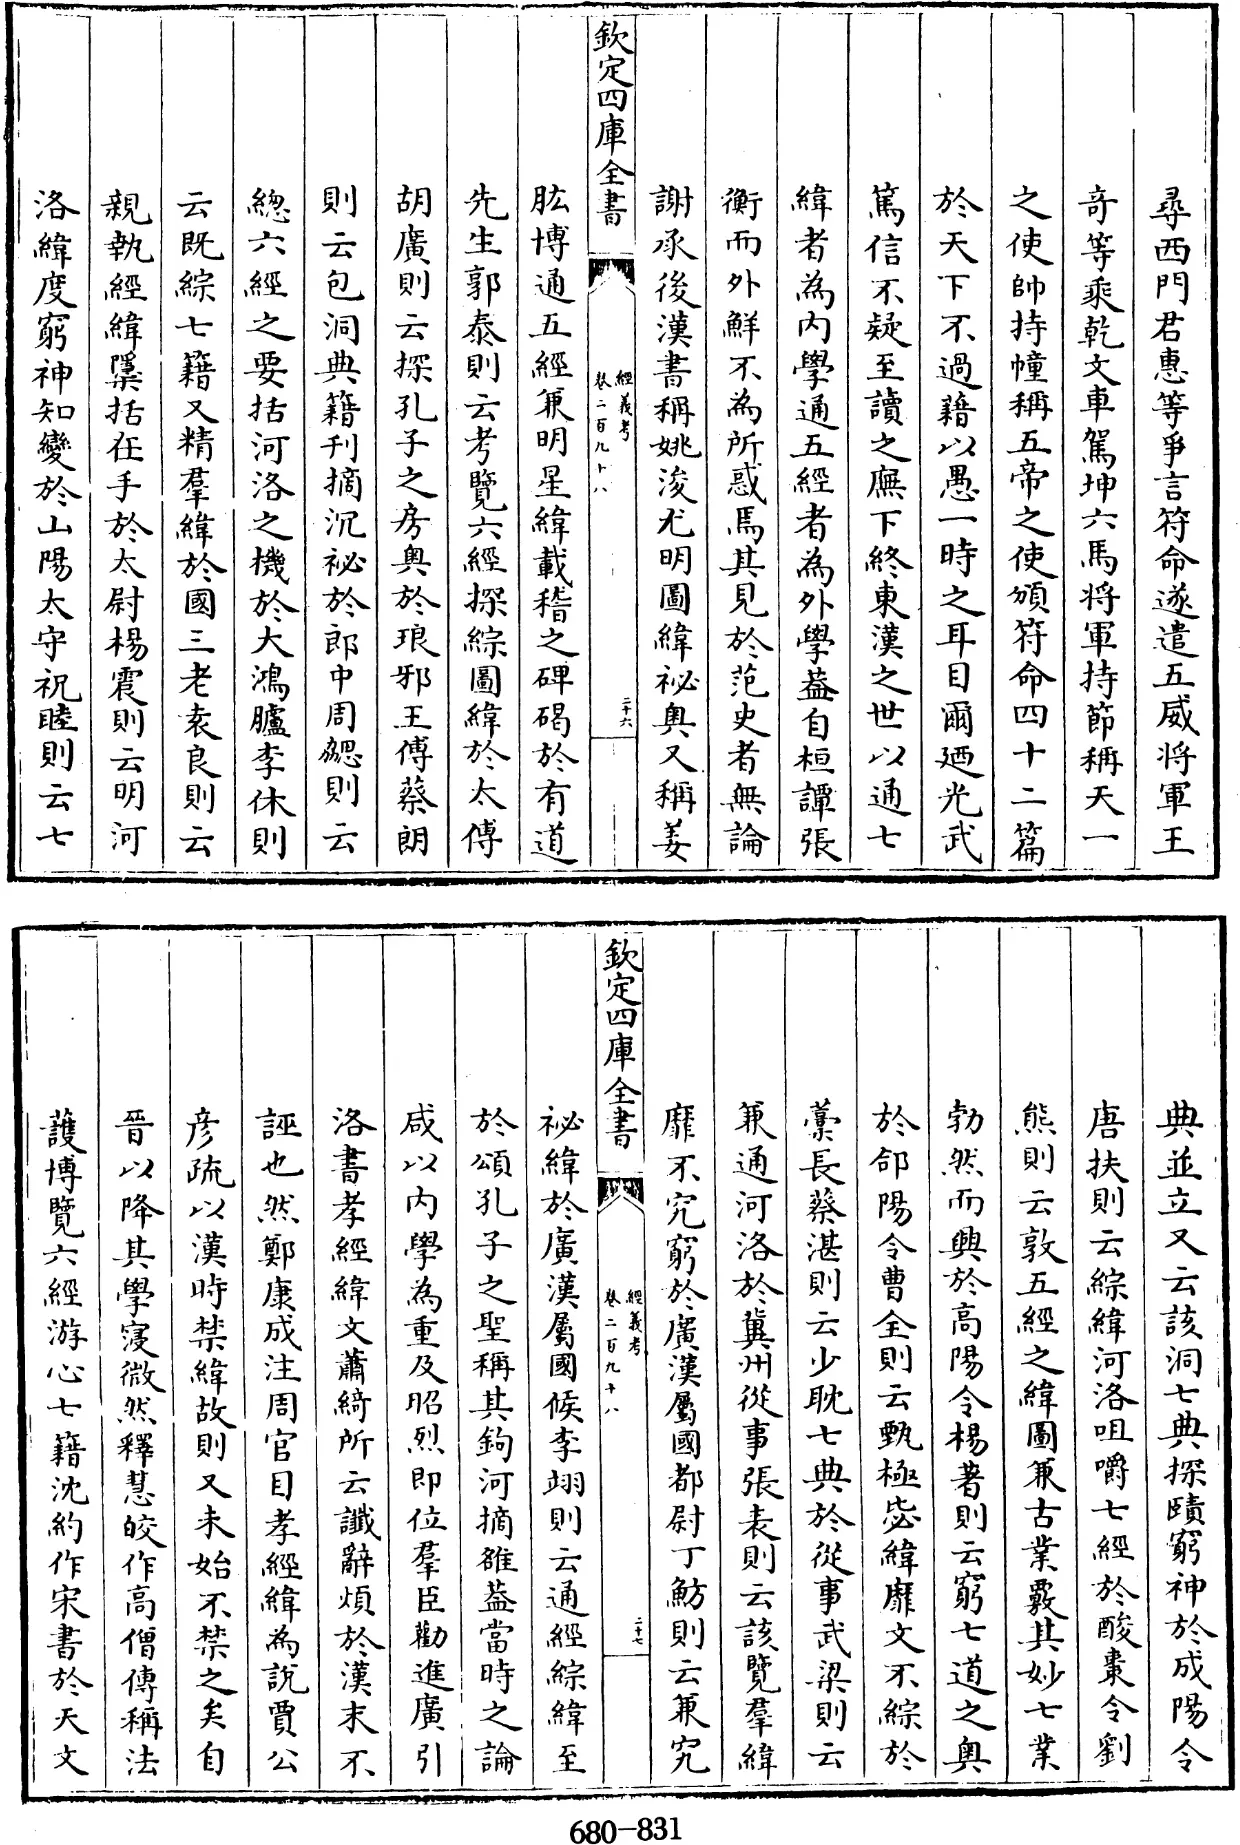 尋西門君惠等爭言符命遂遣五威將軍王
竒等乘乾文車駕坤六馬將軍持節稱天一
之使帥持幢稱五帝之使頒符命四十二篇
於天下不過藉以愚一時之耳目爾廼光武
篤信不疑至讀之廡下終東漢之世以通七
緯者為内學通五經者為外學葢自桓譚張
衡而外鮮不為所惑焉其見於范史者無論
謝承後漢書稱姚浚尤明圖緯祕奥又稱姜
欽定四庫全書
經義考
卷二百九十八
二十六
肱博通五經兼明星緯載稽之碑碣於有道
先生郭泰則云考覽六經探綜圖緯於太傅
胡廣則云探孔子之房奥於琅邪王傅蔡朗
則云包洞典籍刊摘沉祕於郎中周勰則云
總六經之要括河洛之機於大鴻臚李休則
云既綜七籍又精羣緯於國三老袁良則云
親執經緯隱括在手於太尉楊震則云明河
洛緯度窮神知變於山陽太守祝睦則云七
典並立又云該洞七典探賾窮神於成陽令
唐扶則云綜緯河洛咀嚼七經於酸棗令劉
熊則云敦五經之緯圖兼古業覈其妙七業
勃然而興於高陽令楊著則云窮七道之奥
於郃陽令曹全則云甄極毖緯靡文不綜於
藁長蔡湛則云少耽七典於從事武梁則云
兼通河洛於冀州從事張表則云該覽羣緯
靡不究窮於廣漢屬國都尉丁魴則云兼究
欽定四庫全書
經義考
卷二百九十八
二十七
祕緯於廣漢屬國候李翊則云通經綜緯至
於頌孔子之聖稱其鉤河摘雒葢當時之論
咸以内學為重及昭烈即位羣臣勸進廣引
洛書孝經緯文蕭綺所云讖辭煩於漢末不
誣也然鄭康成注周官目孝經緯為說賈公
彦疏以漢時禁緯故則又未始不禁之矣自
晉以降其學寖微然釋慧皎作高僧傳稱法
護博覽六經游心七籍沈約作宋書於天文
680-831